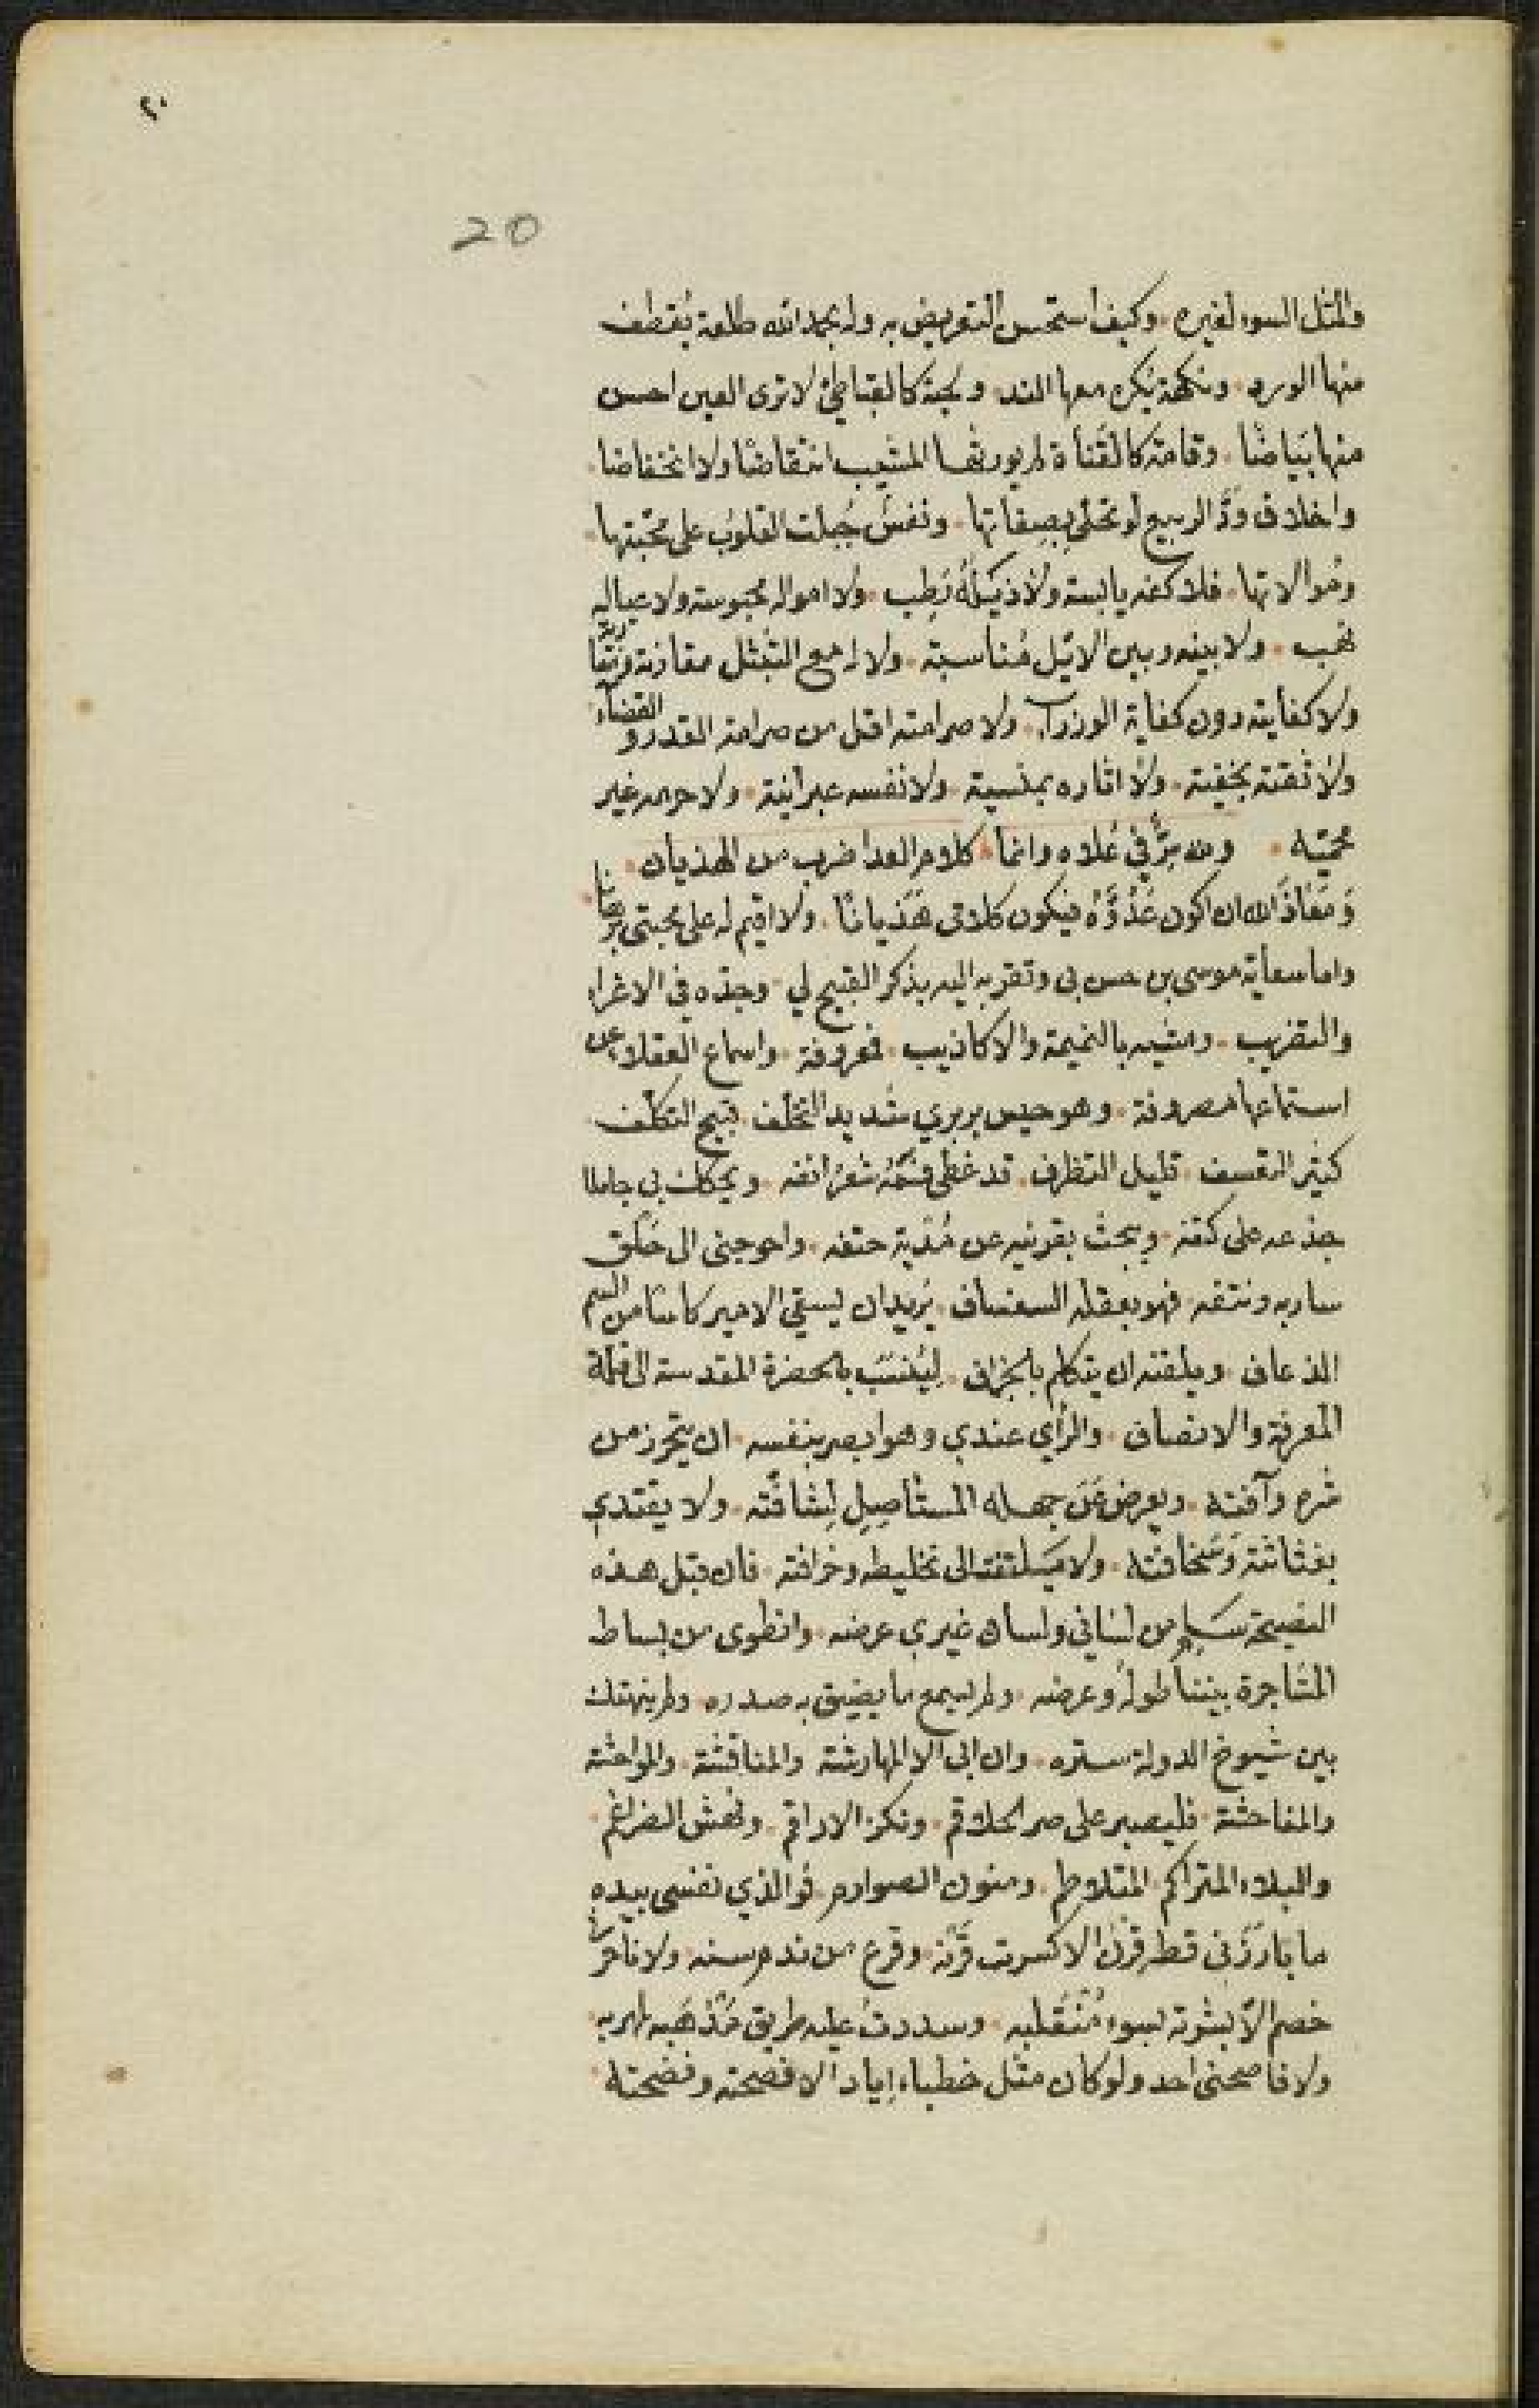 ٢٠
20
والمثل السوء لغيره. وكيف استحسن التعريض به وله بحمد الله طلعة يقطف
منها الورد. ونكهة يكره معها الند. ولحية كالقباطي لا ترى العين احسن
منها بَياضًا. وقامة كالقناة لم يورثها المشيب انتقاضًا ولا انخفاضا.
واخلاق وَدَّ الربيع لو تحلى بصفاتها. ونفسٌ جُبلت القلوب على محبتها.
ومُوالاتها. فلا كفه يابسة ولا ذيله رَطِب. ولا امواله محبوسة ولا عياله
نهب. ولا بينه وبين الايّل مُناسبة. ولا له مع التيتل
ولا كفايته دون كفاية الوزراء. ولا صرامته اقل من صرامة القدر والقضاء
ولا ثقته بخفية. ولا اثاره بمنسية. ولا نفسه عبرانية. ولا حرمه غير
محميّه. ولله سِرٌّ في عُلاه وانما. كلام العدا ضرب من الهذيان.
وَمَعَاذَ الله ان اكون عَدُوَّهُ فيكون كلامي هَذَيانًا. ولا اقيم له على محبتي برهانا.
واما سعاية موسى بن حسن بي وتقربه اليه بذكر القبيح لي وجدّه في الاغراء
والتضريب. ومشيه بالنميمة والاكاذيب. فمعروفة. واسماع العقلاء عن
استماعها مصروفة. وهو حيس بربري شديد التخلف. قبيح التكلف.
كثير التعسف. قليل التظرف. قد غطى فمَهُ شعرُ انفه. ويحكك بي حاملا
جذعه على كتفه. ويبحث بقرنيه عن مُدْية حتفه. واحوجني الى حلق
ساربه ونتفه. فهو بعقله السفساف. يُريد ان يسقي الامير كاسًا من السم
الذعاف. ويلقنه ان يتكلم بالجزاف. ليُنسَب بالحضرة المقدسة الى قلة
المعرفة والانصاف. والرأي عندي وهو ابصر بنفسه. ان يتحرز من
شره وآفته. ويعرض عَن جهله المستأصِل لِشافَته. ولا يقتدي
بغثاثته وَسَخافته. ولا يلتفت الى تخليطه وخرافته. فان قبل هذه
النصيحة سَلِم من لساني ولسان غيري عرضه. وانطوى من بساط
المشاجرة بيننا طولُه وعرضه. ولم يسمع ما يضيق به صدره. ولم ينهتك
بين شيوخ الدولة ستره. وان ابى الا المهارشة والمناقشة. والمواحشة
والمفاحشة. فليصبر على مر العلاقم. ونكز الاراقم. ونهش الضراغم.
والبلاء المتراكم المتلاطم. ومنون الصوارم. فوالذي نفسي بيده
ما بارَزَني قط قِرنٌ الا كسرت قَرْنه. وقرع من ندم سنه. ولا ناحرَنا
خصم الّا بشرته بسوء مُنْقلبه. وسددتُ عليه طريق مَذهَبه لهربه.
ولا فاصحني احد ولو كان مثل خطباء إياد الا فصحته وفضحته.